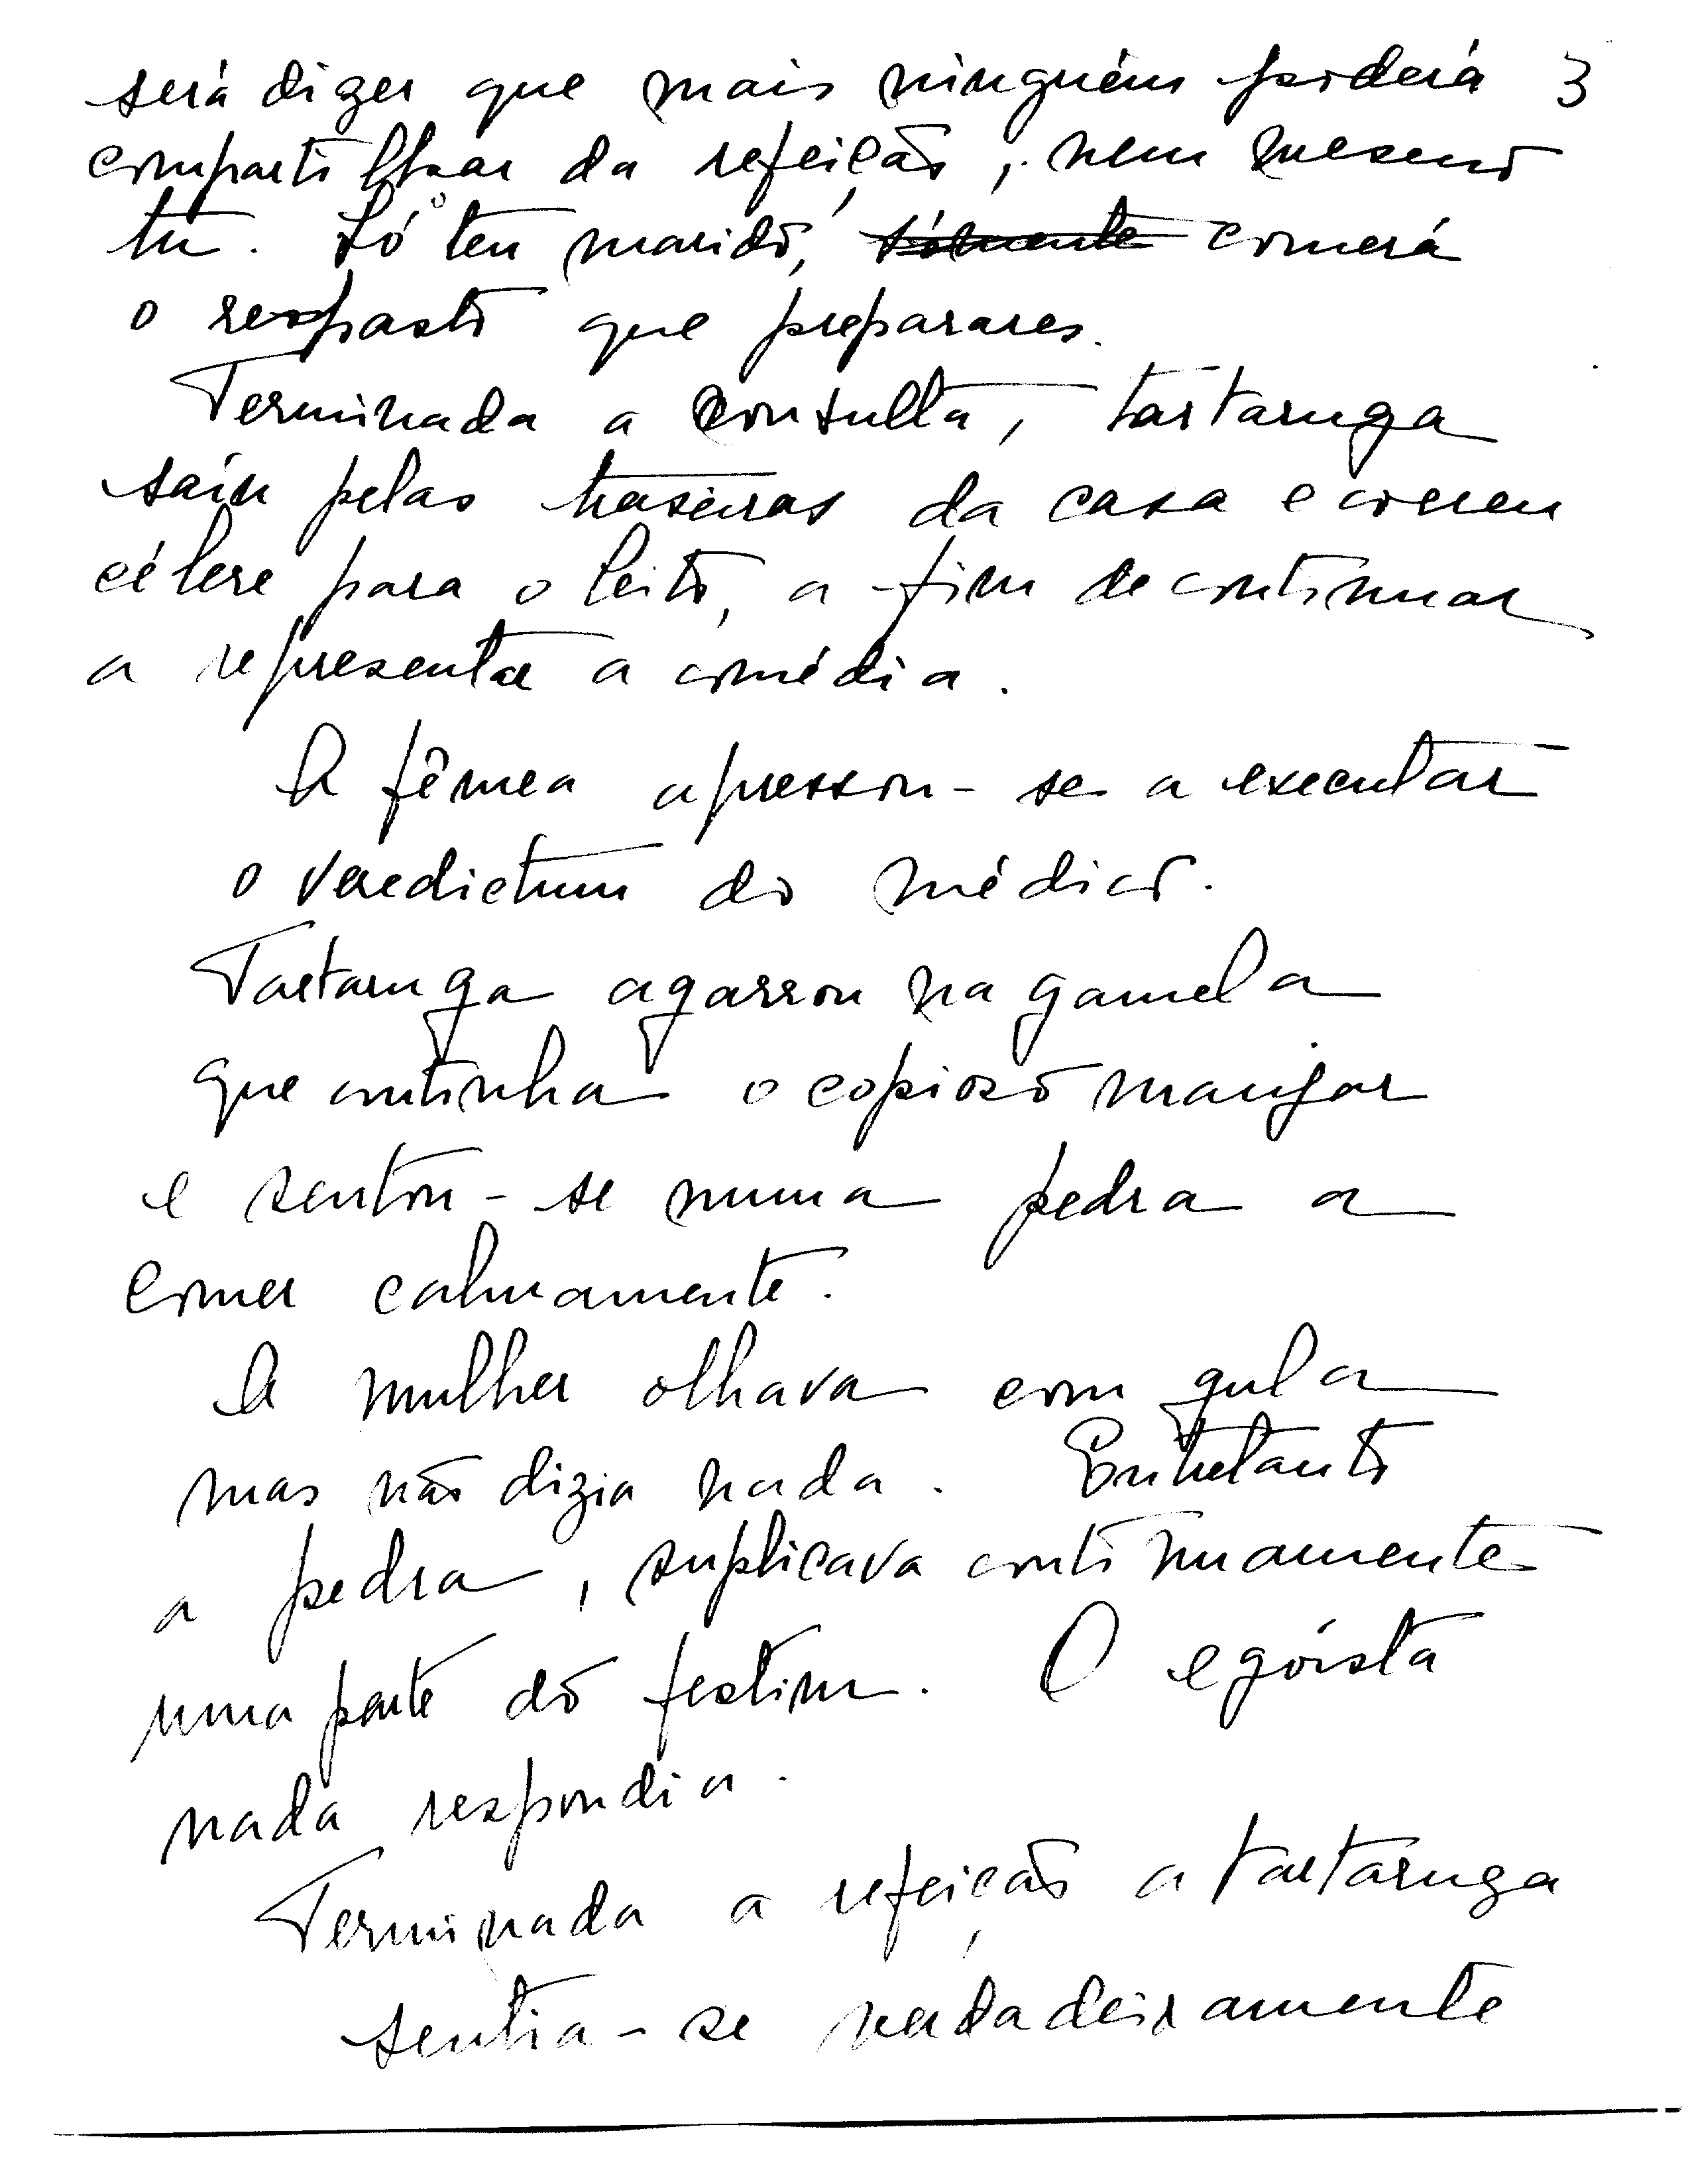 será dizer que mais ninguém poderá 3
compartilhar da refeição, nem mesmo
tu. Só teu marido, sómente comerá
o respasto que preparares.
Terminada a consulta, tartaruga
saíu pelas traseiras da casa e correu
célere para o leito, a fim de continuar
a representar a comédia.
A fêmea apressou-se a executar
o veredictum do médico.
Tartaruga agarrou na gamela
que continha o copioso manjar
e sentou-se numa pedra a
comer calmamente.
A mulher olhava com gula
mas não dizia nada. Entretanto
a pedra, suplicava continuamente
uma parte do festim. O egoísta
nada respondia.
Terminada a refeição a tartaruga
sentia-se verdadeiramente